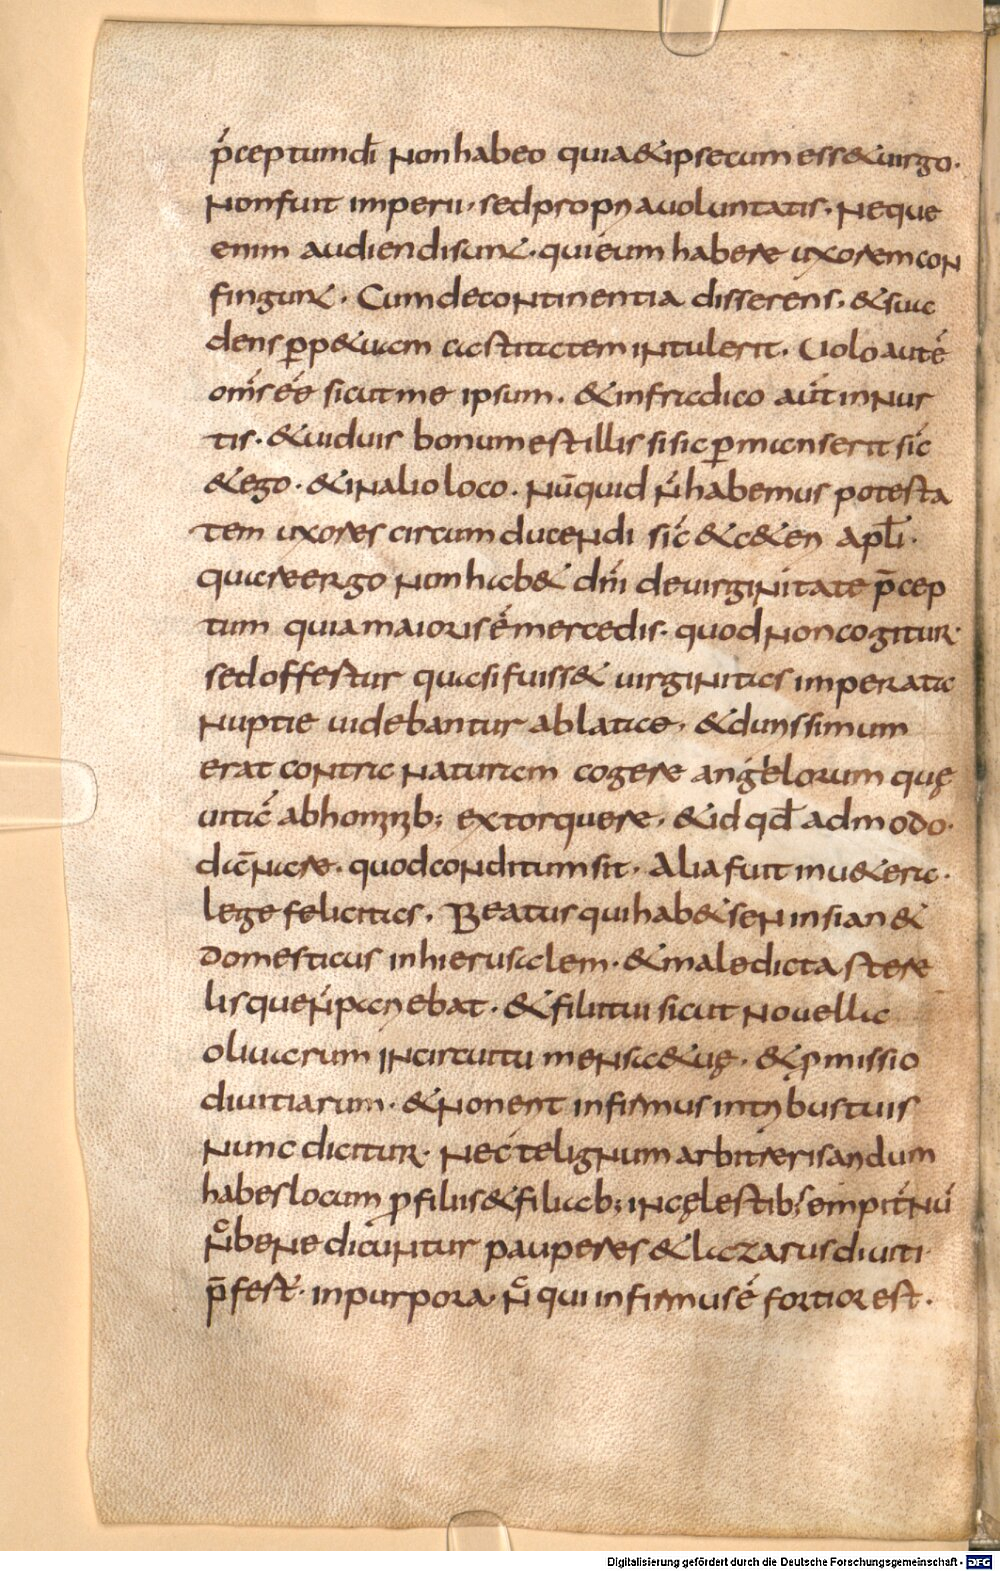 p̄ceptum dī Non habeo quia & ipse cum ess& uirgo.
Non fuit imperii. sed propriꝫ uoluntatis. Neque
enim audiendi sunt. qui eum habere uxorem con
fingunt. Cum de continentia disserens. & sua
dens ꝑp&uam castitatem intulerit. Uolo autē
om̄s eē sicut me ipsum. & infra dico aut̄ in nup
tis. & uiduis bonum est illis si sic ꝑmanserit sic̄
& ego. & in alio loco. Nūquid n̄ habemus potesta
tem uxores circum ducendi sic̄ & c&eri apl̄i.
quare ergo non hab& dn̄i de uirginitate p̄cep
tum quia maioris ē mercedis. quod non cogitur.
sed offertur quasi fuiss& uirginitas imperata
Nuptie uidebantur ablatae. & durissimum
erat contra naturam cogere angelorum quę
uitā ab hominib; extorquere. & id qd̄ admodo.
dān̄are. quod conditum sit. Alia fuit in u&era.
lege felicitas. Beatus qui hab& sen in sian &
domesticus in hierusalem. & maledicta stere
lis que n̄ pariebat. & filii tui sicut nouella
oliuarum In circuitu mensae tuę. & ꝓmissio
diuitiarum. & non erit infirmus in tribus tuis
Nunc dicitur. Nec te lignum arbitreris aridum
habes locum ꝓ filiis & filiab; in cęlestib; sempit̄nū
N̄c benedicuntur pauperes & lazarus diuiti
p̄fert̄. in purpora. N̄c qui infirmus ē fortior est.
Digitalisierung gefördert durch die Deutsche Forschungsgemeinschaft - DFG